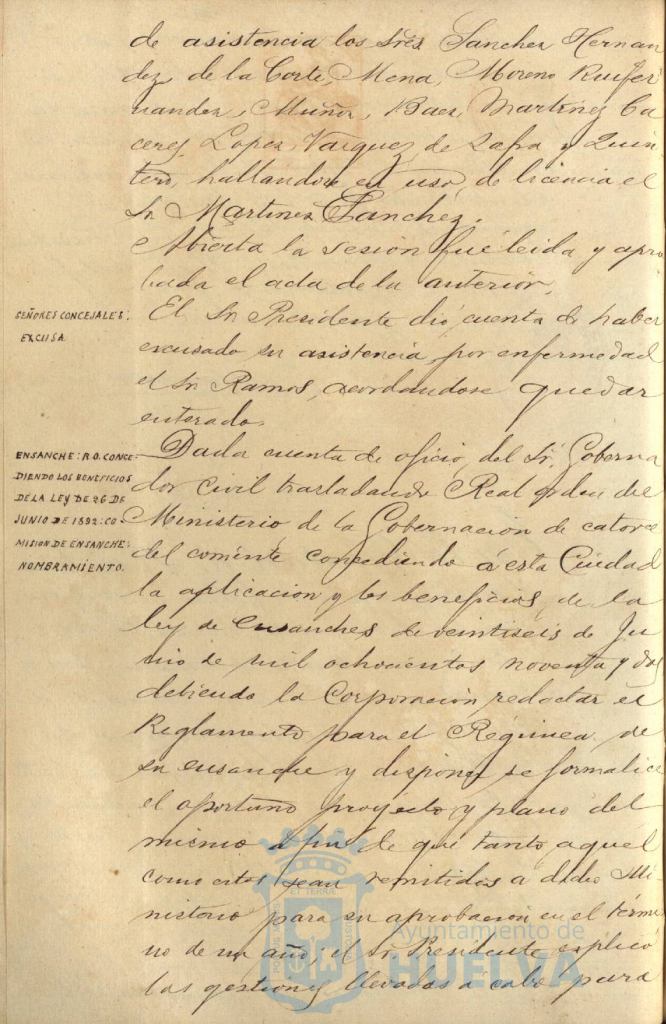 de asistencia los Sres Sanchez Hernan
dez, de la Corte, Mena, Moreno, Ruifer
nandez, Muñoz, Baez, Martinez Ca
ceres, Lopez, Vazquez de Zafra y Quin
tero, hallandose en uso de licencia el
Sr Martinez Sanchez.
Abierta la sesión fué leida y apro
bada el acta de la anterior.
SEÑORES CONCEJALES:
EXCUSA
El Sr Presidente dió cuenta de haber
excusado su asistencia por enfermedad
el Sr Ramos, acordandose quedar
enterado.
ENSANCHE: R.O. CONCE-
DIENDO LOS BENEFICIOS
DE LA LEY DE 26 DE
JUNIO DE 1892: CO-
MISION DE ENSANCHE:
NOMBRAMIENTO.
Dada cuenta de oficio del Sr. Goberna
dor Civil trasladando Real orden del
Ministerio de la Gobernacion de catorce
del corriente concediendo á esta Ciudad
la aplicacion y los beneficios de la
ley de Ensanches de veintiseis de Ju
nio de mil ochocientos noventa y dos
debiendo la Corporación redactar el
Reglamento para el Régimen de
su ensanche y disponer se formalice
el oportuno proyecto y plano del
mismo a fin de que tanto aquel
como estos sean remitidos a dicho Mi-
nisterio para su aprobacion en el térmi
no de un año; el Sr Presidente explicó
las gestiones llevadas á cabo para
Ayuntamiento de
HUELVA